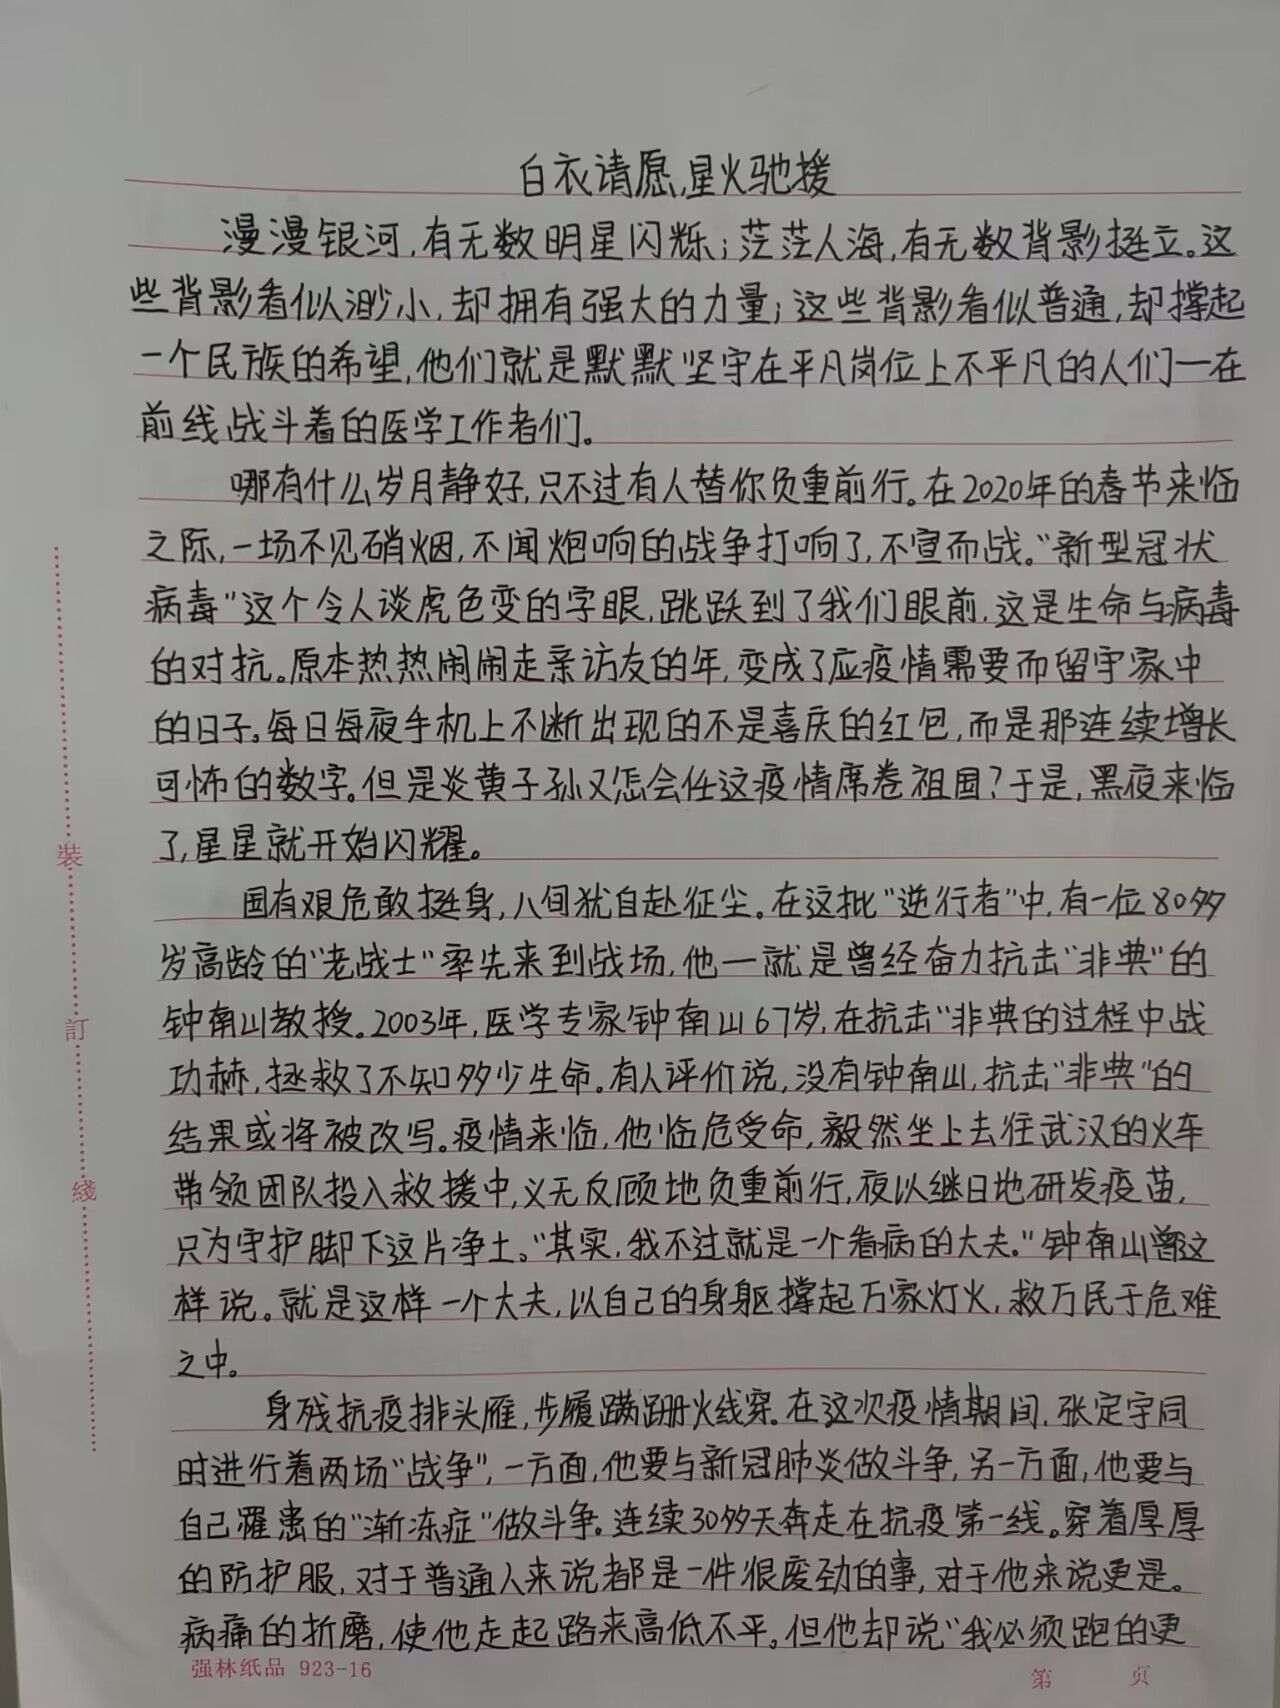 白衣请愿,星火驰援
漫漫银河,有无数明星闪烁;茫茫人海,有无数背影挺立。这
些背影看似渺小,却拥有强大的力量;这些背影看似普通,却撑起
一个民族的希望,他们就是默默坚守在平凡岗位上不平凡的人们一在
前线战斗着的医学工作者们。
哪有什么岁月静好,只不过有人替你负重前行。在2020年的春节来临
之际,一场不见硝烟,不闻炮响的战争打响了,不宣而战。“新型冠状
病毒”这个令人谈虎色变的字眼,跳跃到了我们眼前,这是生命与病毒
的对抗。原本热热闹闹走亲访友的年,变成了应疫情需要而留守家中
的日子。每日每夜手机上不断出现的不是喜庆的红包,而是那连续增长
可怖的数字。但是炎黄子孙又怎会任这疫情席卷祖国?于是,黑夜来临
了,星星就开始闪耀。
国有艰危敢挺身,八旬犹自赴征尘。在这批“逆行者”中,有一位80多
岁高龄的“老战士”率先来到战场,他一就是曾经奋力抗击“非典”的
钟南山教授。2003年,医学专家钟南山67岁,在抗击“非典的过程中战
功赫,拯救了不知多少生命。有人评价说,没有钟南山,抗击“非典”的
结果或将被改写。疫情来临,他临危受命,毅然坐上去往武汉的火车
带领团队投入救援中,义无反顾地负重前行,夜以继日地研发疫苗,
只为守护脚下这片净土。“其实,我不过就是一个看病的大夫。”钟南山曾这
样说。就是这样一个大夫,以自己的身躯撑起万家灯火,救万民于危难
之中。
身残抗疫排头雁,步履蹒跚火线穿。在这次疫情期间,张定宇同
时进行着两场“战争”,一方面,他要与新冠肺炎做斗争,另一方面,他要与
自己罹患的“渐冻症”做斗争。连续30多天奔走在抗疫第一线。穿着厚厚
的防护服,对于普通人来说都是一件很废劲的事,对于他来说更是。
病痛的折磨,使他走起路来高低不平。但他却说“我必须跑的更
装
訂
綫
强林纸品 923-16
第 页